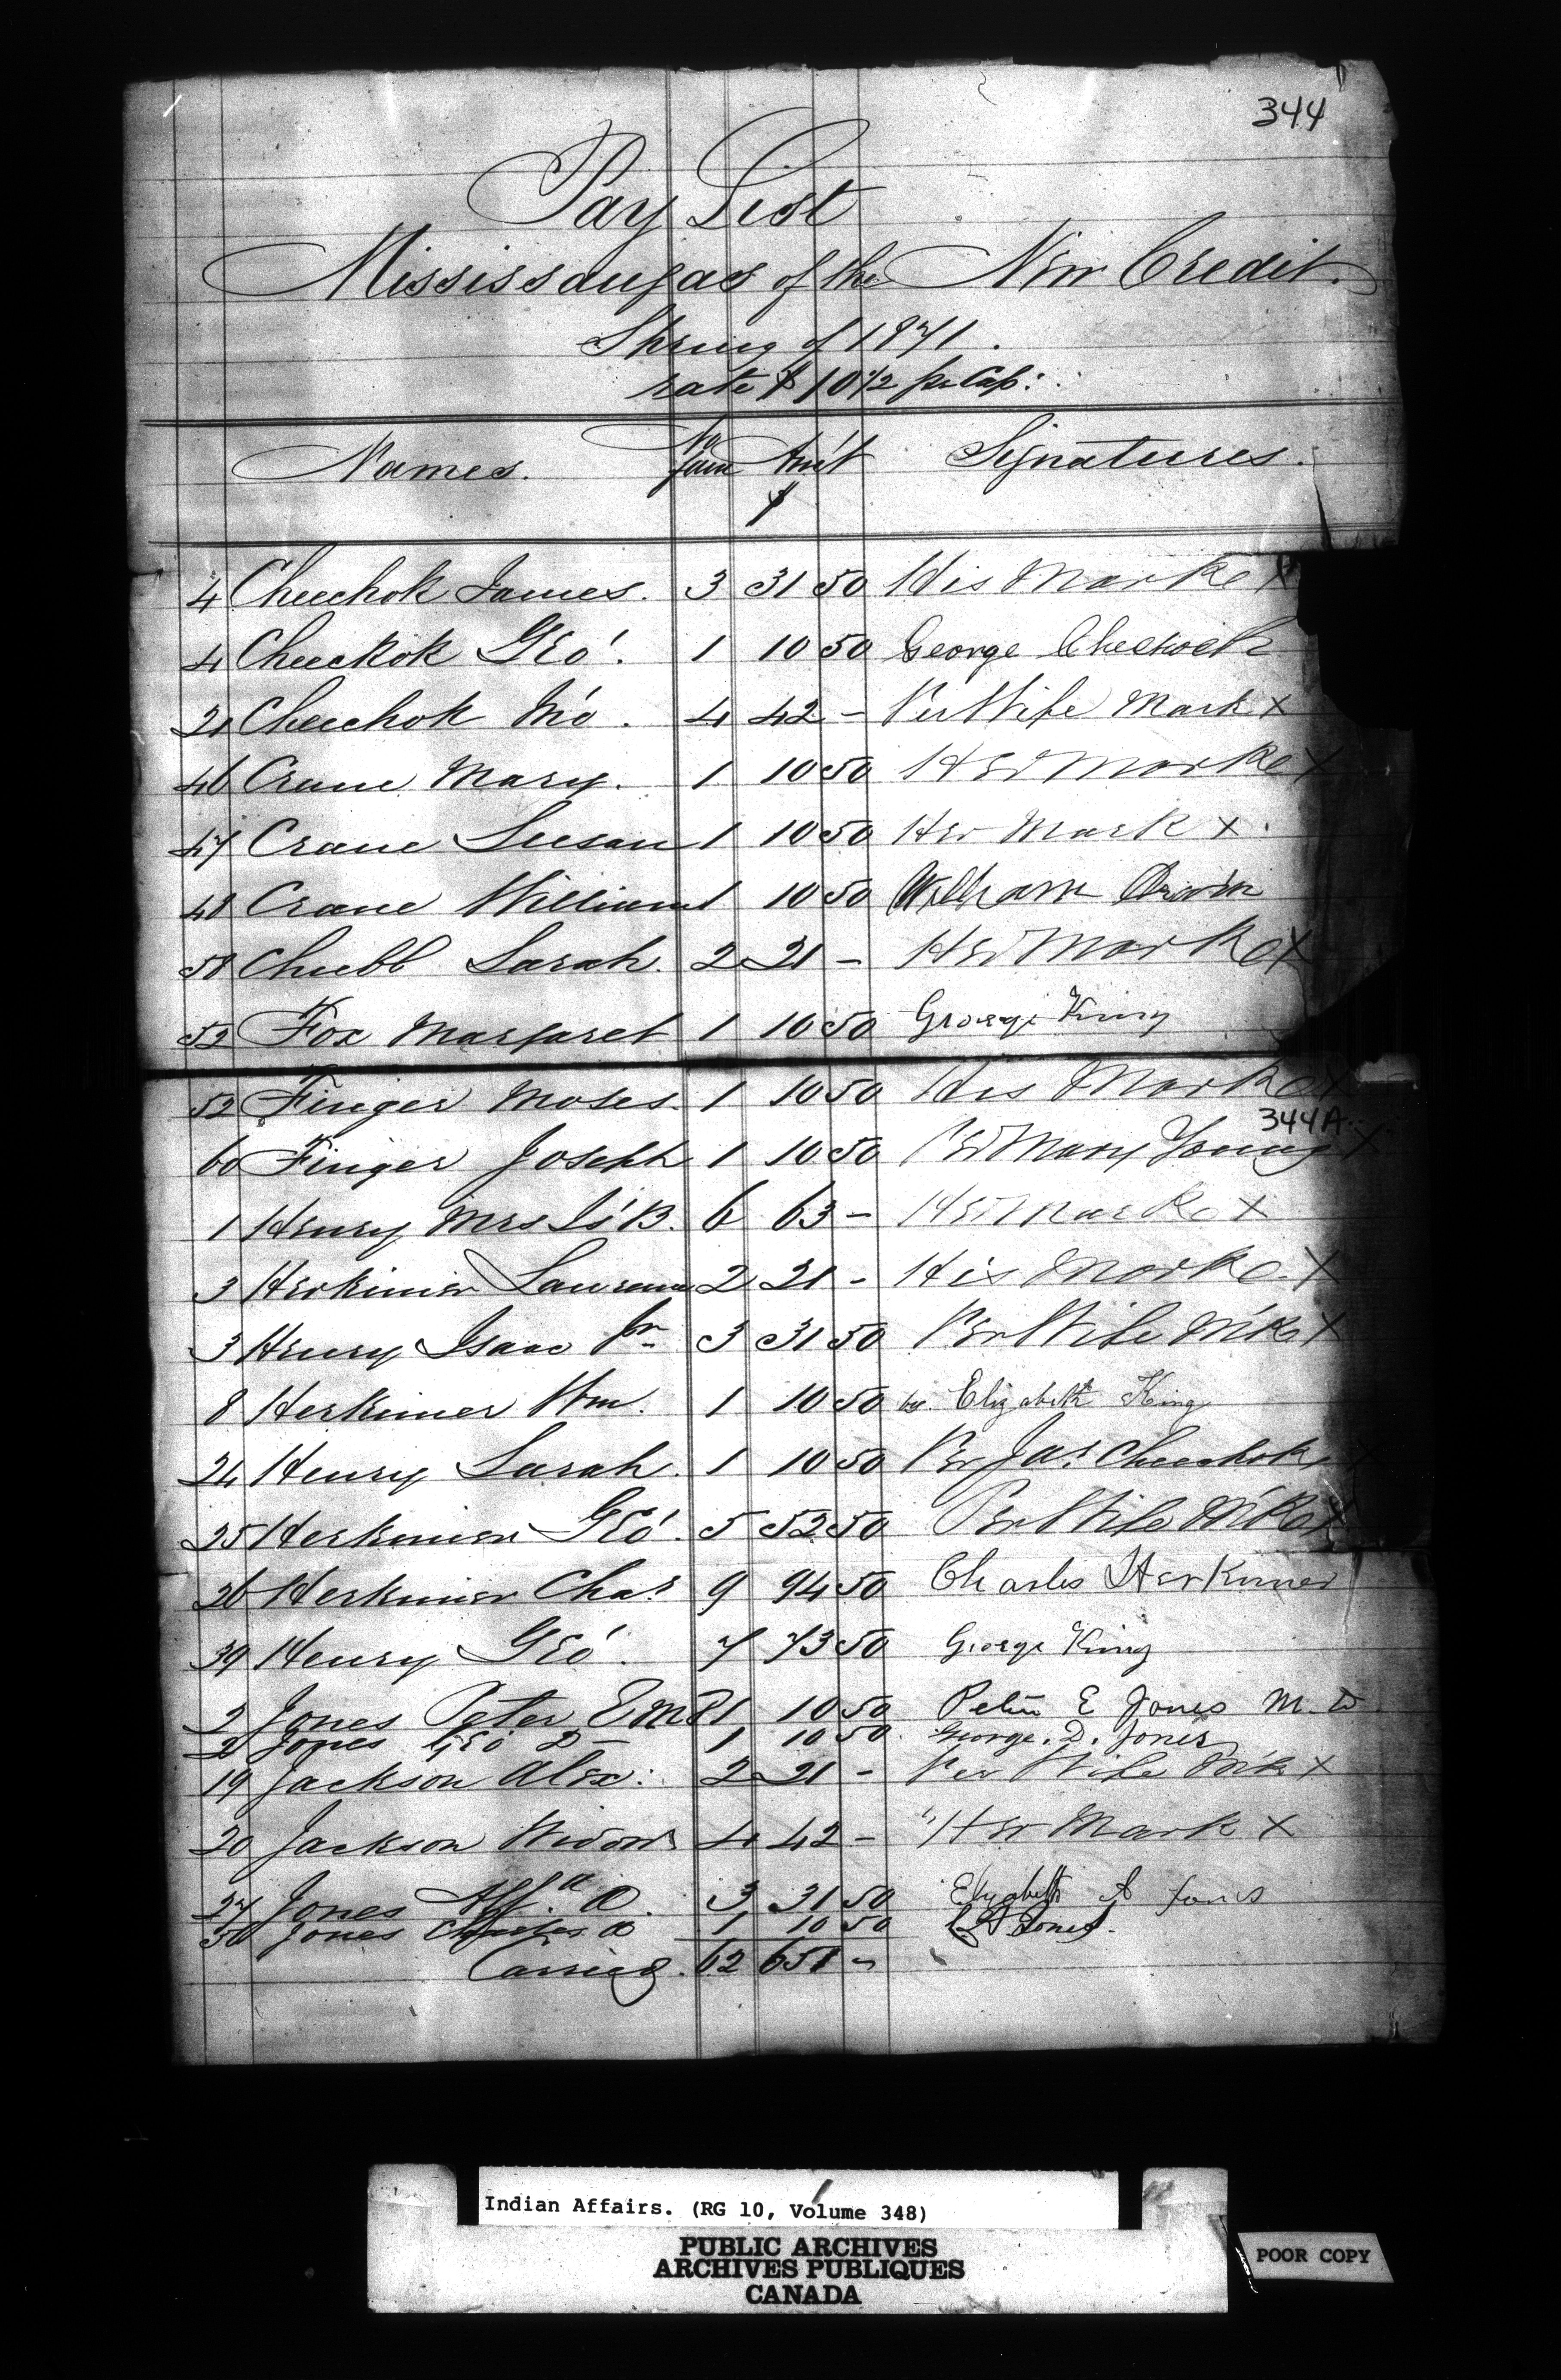 344
Pay List
Mississaugas of the New Credit.
Spring of 1871.
rate $10 1/2 pr Cap:
Names. No Fam Am't Signatures.
$
4 Cheechok James. 3 31 50 His Mark X
4 Cheekok Geo'. 1 10 50 George Cheekock
21 Cheechok Jno. 4 42 - Per Wife Mark X
46 Crane Mary. 1 10 50 Her Mark X
47 Crane Susan 1 10 50 Her Mark X.
48 Crane William 1 10 50 William
58 Chubb Sarah. 2 21 - Her Mark X
52 Fox Margaret 1 10 50 George King
52 Finger Moses. 1 10 50 His Mark X
344A
60 Finger Joseph 1 10 50 Per Mary Young X
1 Henry Mrs 6 63 - Her Mark X
3 Herkimer Lawrence 2 21 - His Mark X
3 Henry Isaac Jr 3 31 50 Per Wife M'k X
8 Herkimer Wm. 1 10 50 by Elizabeth King
24 Henry Sarah. 1 10 50 Per Jas Cheechok X
25 Herkimer Geo'. 5 52 50 Per Wife M'k X
26 Herkimer Chas 9 94 50 Charles Herkimer
39 Henry Geo'. 7 73 50 George King
2 Jones Peter E MD 1 10 50 Peter E Jones M.D.
2 Jones Geo D 1 10 50. George. D. Jones
19 Jackson Alex: 2 21 - Per Wife M'k X
20 Jackson Widow 4 42 - "Her Mark X
27 Jones 3 31 50 Elizabeth A Jones
50 Jones Charles A 1 10 50 Jones.
Carried. 62 651 -
Indian Affairs. (RG 10, Volume 348)
PUBLIC ARCHIVES
ARCHIVES PUBLIQUES
CANADA
POOR COPY